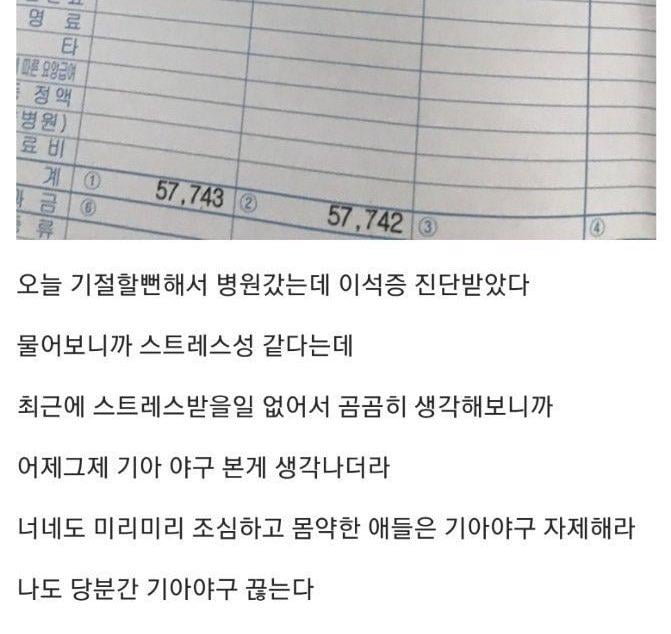 명 료
타
따른 요양급여
정액
병원)
료 비
계 ① 57,743 ② 57,742 ③ ④
금 ⑥
류
오늘 기절할뻔해서 병원갔는데 이석증 진단받았다
물어보니까 스트레스성 같다는데
최근에 스트레스받을일 없어서 곰곰히 생각해보니까
어제그제 기아 야구 본게 생각나더라
너네도 미리미리 조심하고 몸약한 애들은 기아야구 자제해라
나도 당분간 기아야구 끊는다